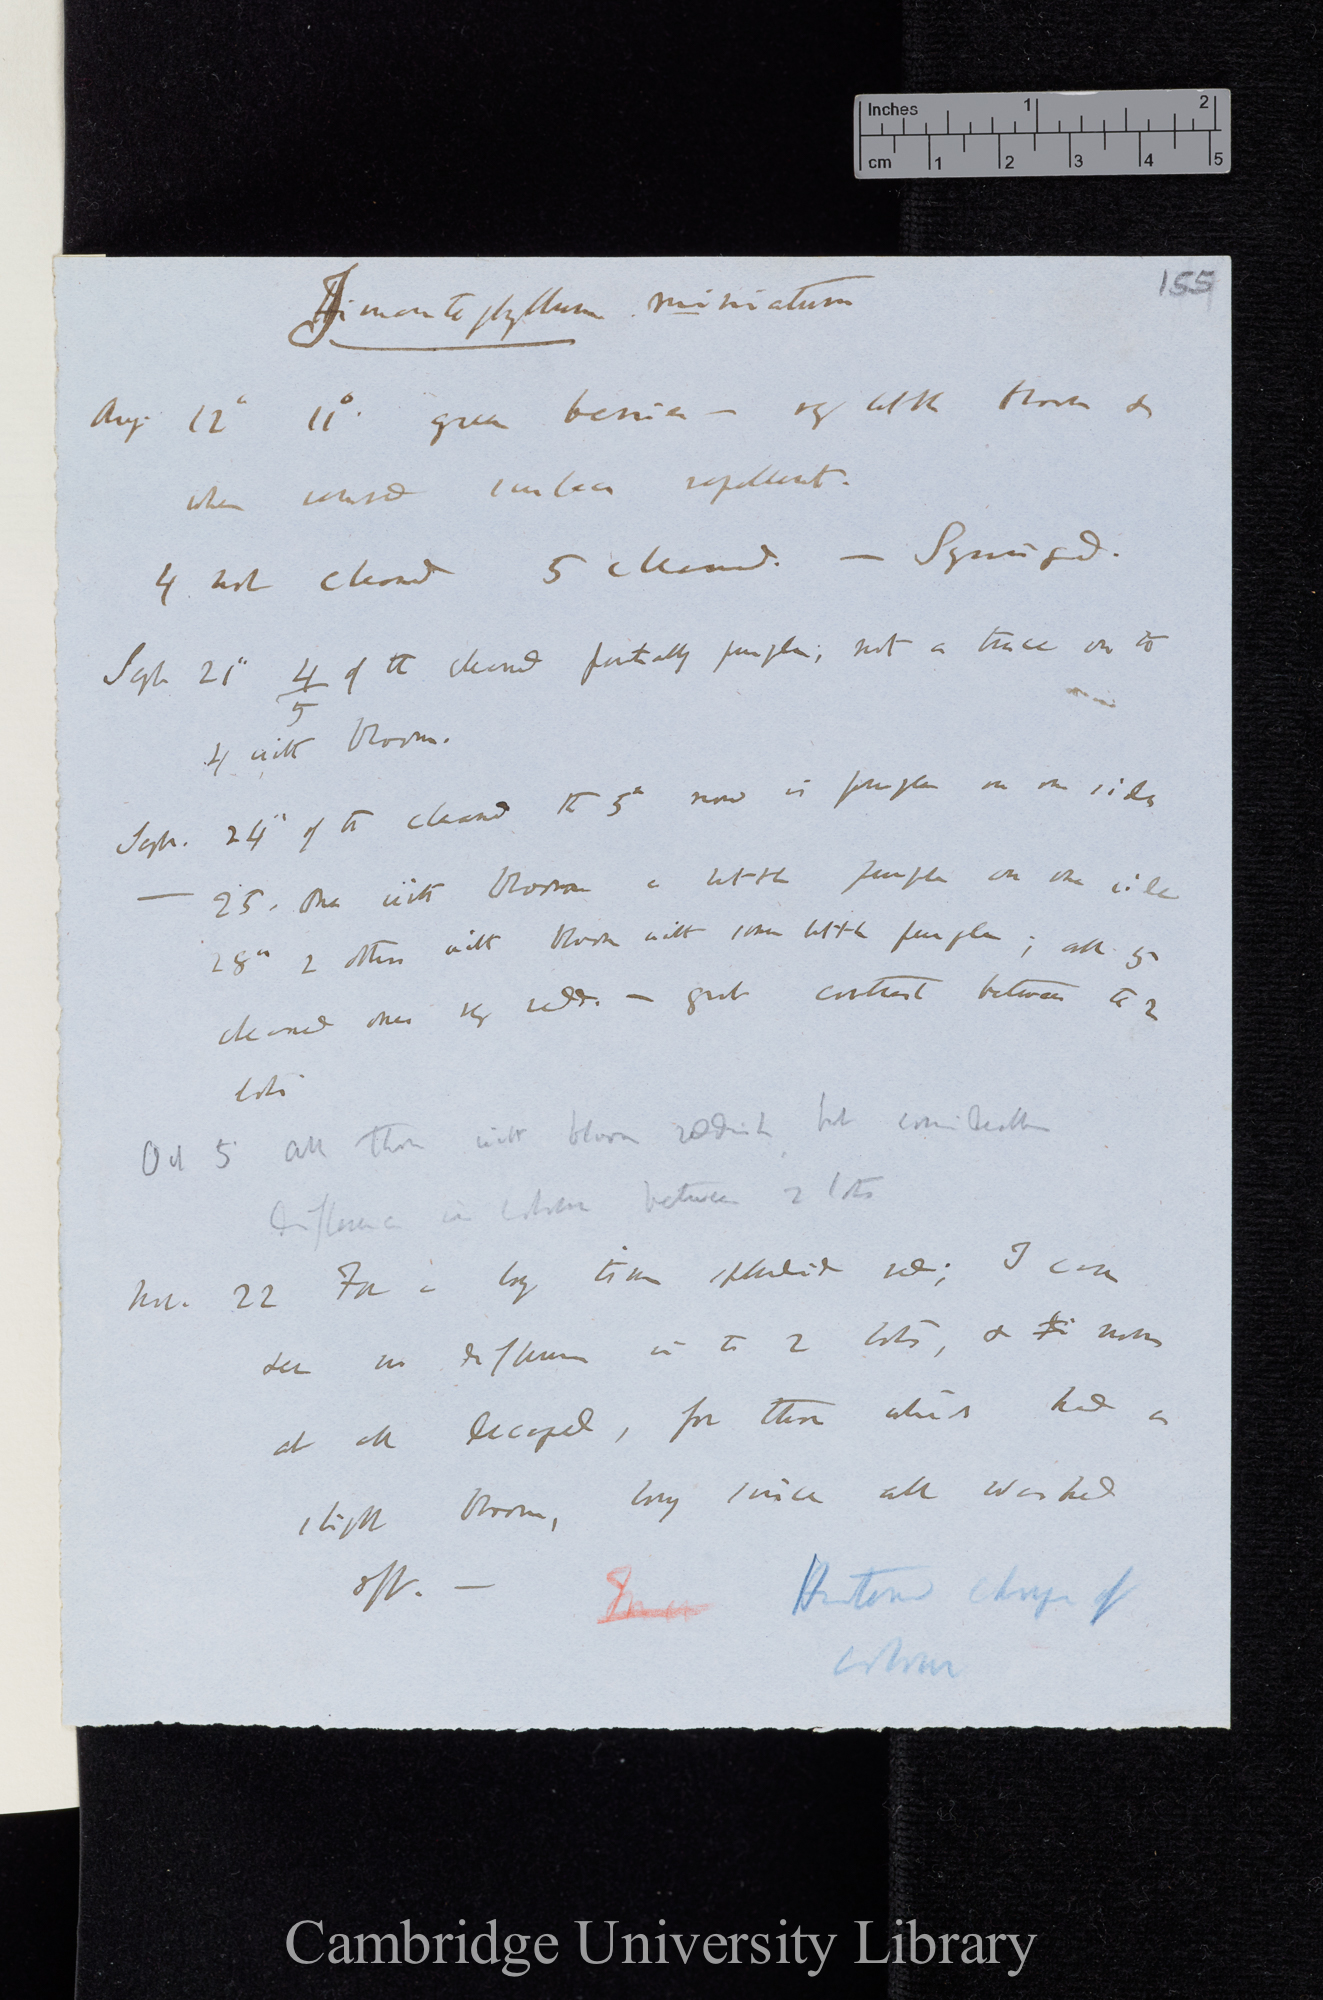 Inches 1 2
cm 1 2 3 4 5
155
Imantophyllum miniatum
Aug 12° 11°. green berries — very little bloom &
when rubbed surface repellent.
4 not cleaned 5 cleaned. — Syringed.
Sept 21° 4/5 of the cleaned partially purple; not a trace on the
4 with bloom.
Sept. 24° of the cleaned the 5th now is purple on one side
— 25. One with bloom a little purple on one side
28th 2 others with bloom with some little purple; all 5
cleaned ones very red. — great contrast between the 2
lots
Oct 5 all those with bloom reddish but considerable
difference in colour between 2 lots
Nov. 22 For a long time splendid red; I can
see no difference in the 2 lots, & none
at all decayed, for those which had a
slight bloom, long since all washed
off. —
Hastened change of
colour
Cambridge University Library